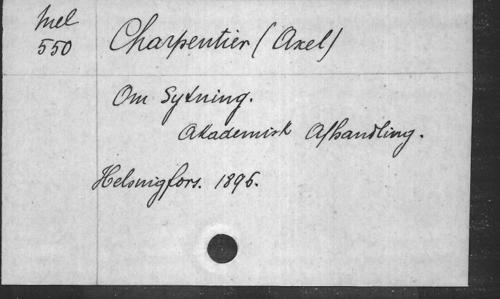 Mel
550
Charpentier (Axel)
Om Sytning.
Akademisk Afhandling.
Helsingfors. 1896.